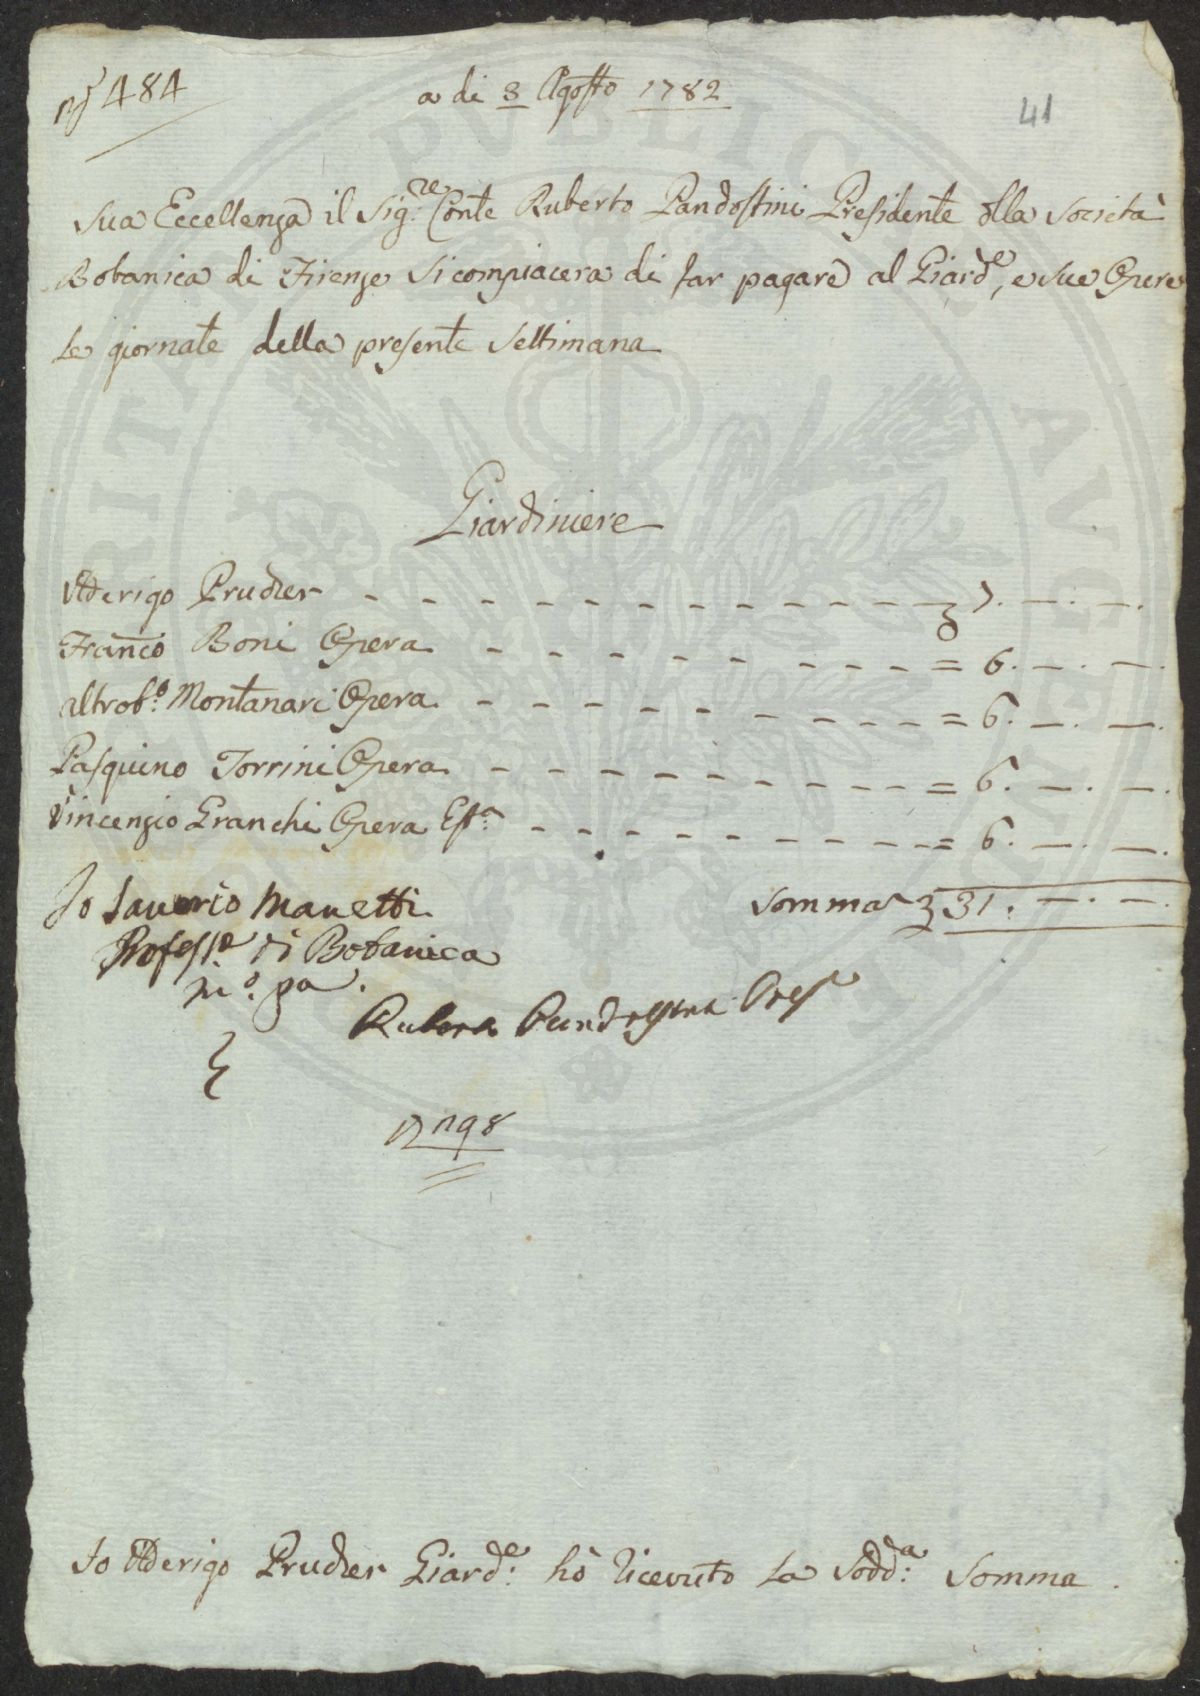 N 484
a di 3 Agosto 1782
41
Sua Eccellenza il Sig.re Conte Ruberto Pandolfini Presidente dlla Società
Botanica di Firenze si compiacera di far pagare al Giard.e, e sue Opere
le giornate della presente Settimana
Giardiniere
Aderigo Prucher - - - - - - - - - - 7. —. —.
Franco Boni Opera - - - - - - - - = 6. —. —.
Altrob.o Montanari Opera - - - - - - - - = 6. —. —.
Pasquino Torrini Opera - - - - - - - - = 6. —. —.
Vincenzio Granchi Opera Est.a - - - - - - - - = 6. —. —.
Somma 31. —. —.
Io Saverio Manetti
Profess.e di Botanica
m.o pa.
Ruberto Pandolfini Pres
N 198
Io Aderigo Prucher Giard.e hò ricevuto la Sodd.a Somma.
PVBLICAE
AVGENTIVM